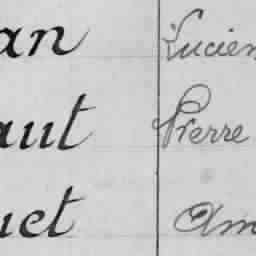 an Lucien
aut Pierre
uet Am